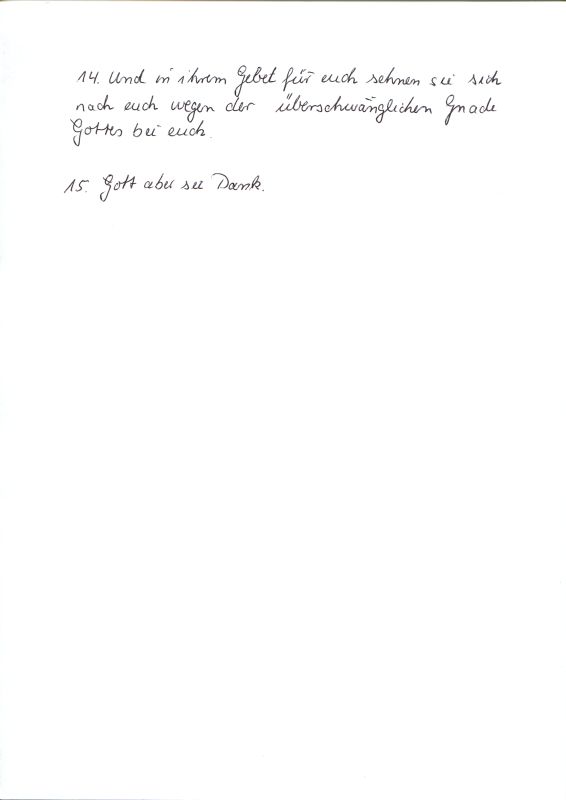 14. Und in ihrem Gebet für euch sehnen sie sich
nach euch wegen der überschwänglichen Gnade
Gottes bei euch.
15. Gott aber sei Dank.